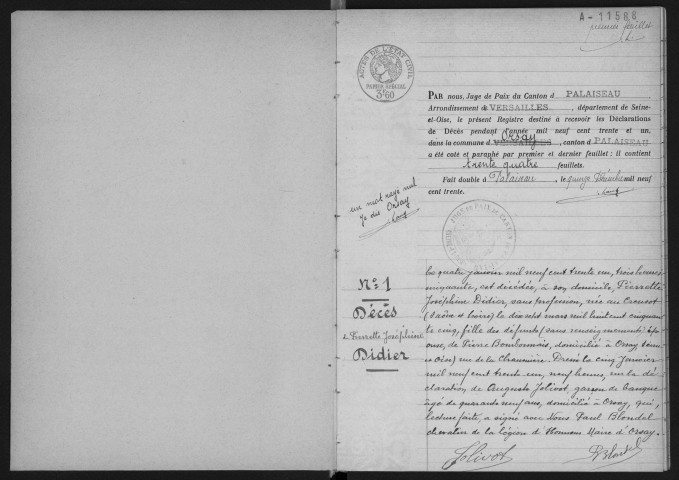 A-11586
premier feuillet
ACTES DE L'ÉTAT CIVIL
PAPIER SPÉCIAL
3f60
PAR nous, Juge de Paix du Canton d PALAISEAU,
Arrondissement de VERSAILLES, département de Seine-
et-Oise, le présent Registre destiné à recevoir les Déclarations
de Décès pendant l'année mil neuf cent trente et un,
dans la commune d Orsay, canton d PALAISEAU
a été coté et paraphé par premier et dernier feuillet ; il contient
trente quatre feuillets.
Fait double à Palaiseau, le quinze Décembre mil neuf
cent trente.
un mot rayé nul
je dis Orsay
N° 1
Décès
de Pierrette Joséphine
Didier
Le quatre janvier mil neuf cent trente un, trois heures
cinquante, est décédée, à son domicile, Pierrette
Joséphine Didier, sans profession, née au Creusot
(Saône et Loire) le dix sept mars mil huit cent cinquan
te cinq, fille des défunts (sans renseignements) ép
ouse, de Pierre, domicilié à Orsay (Seine
et Oise) rue de la Chaumière. Dressé le cinq Janvier
mil neuf cent trente un, neuf heures, sur la dé
claration de Auguste Jolivot, garçon de banque
âgé de quarante neuf ans, domicilié à Orsay, qui,
lecture faite, a signé avec Nous Paul Blondel
chevalier de la légion d'Honneur Maire d'Orsay.
Jolivot
PBlondel